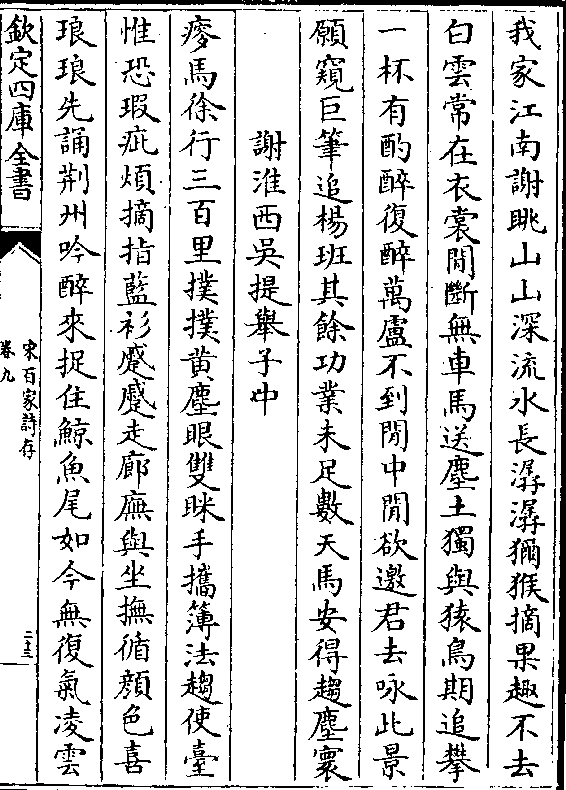 我家江南謝眺山山深流水長潺潺獮猴摘果趣不去
白雲常在衣裳間斷無車馬送塵土獨與猿鳥期追攀
一杯有酌醉復醉萬慮不到閒中閒欲邀君去咏此景
願窺巨筆追楊班其餘功業未足數天馬安得趨塵寰
謝淮西吳提舉子中
瘮馬徐行三百里撲撲黄塵眼雙眯手攜簿法趨使臺
惟恐瑕疵煩摘指藍衫蹙蹙走廊廡與坐撫循顔色喜
琅琅先誦荆州吟醉來捉住鯨魚尾如今無復氣凌雲
欽定四庫全書
宋百家詩存
卷九